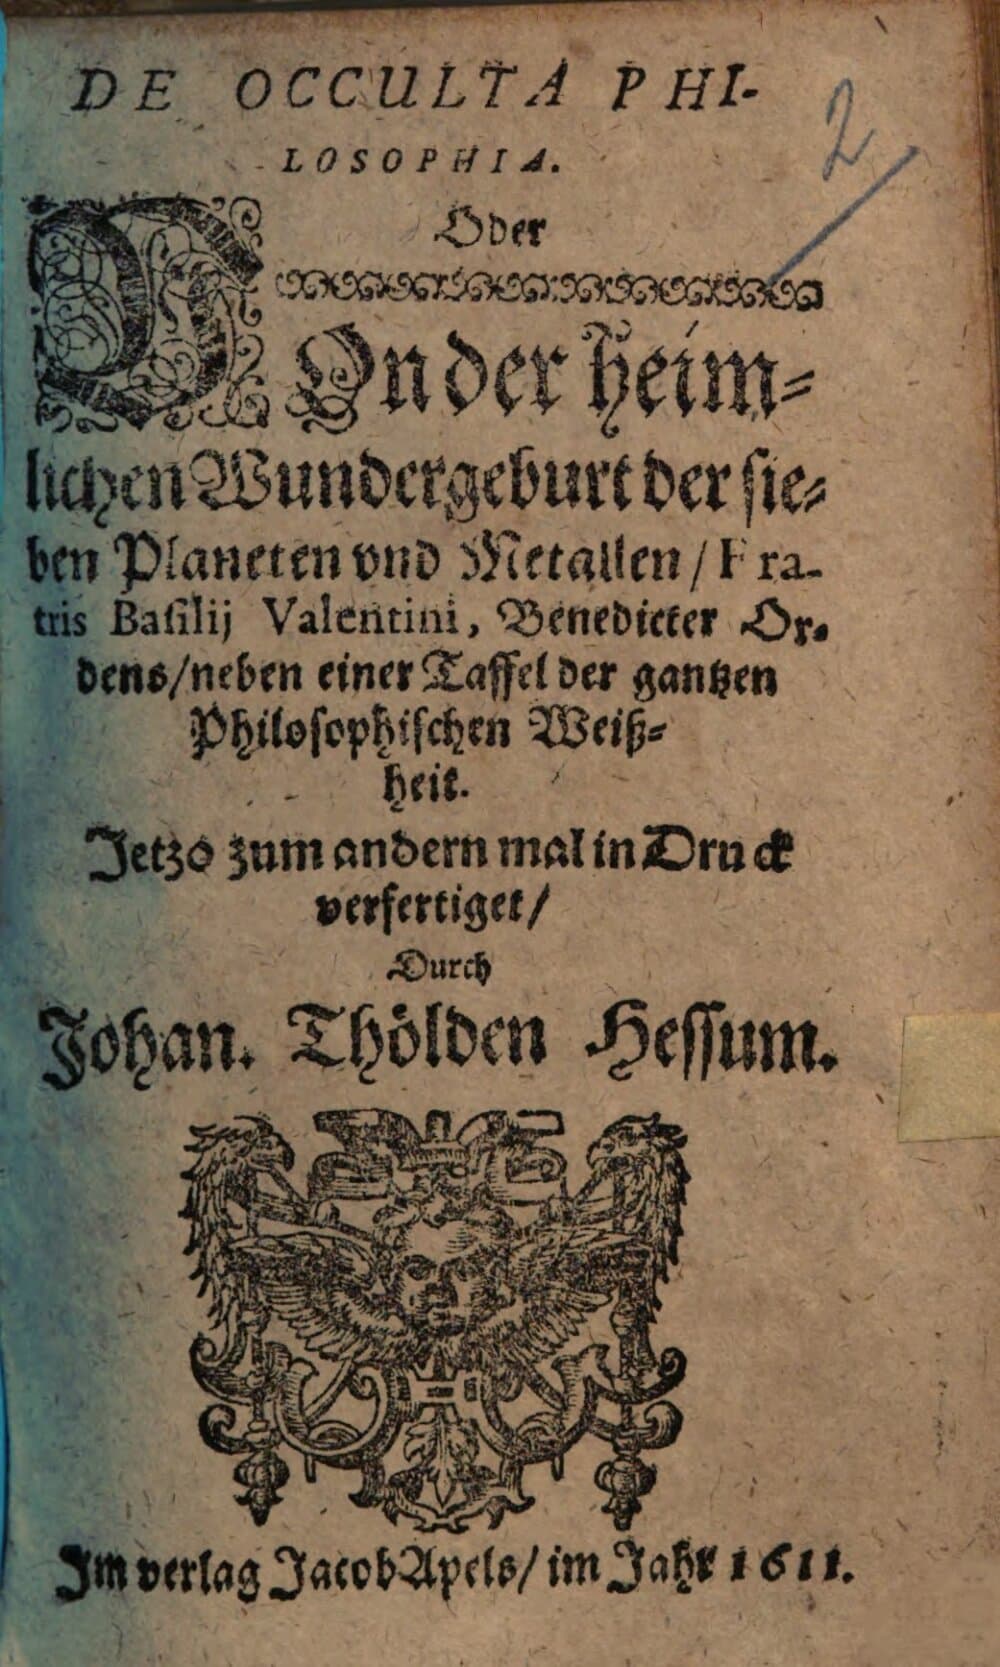 DE OCCULTA PHI-
LOSOPHIA.
Oder
VOn der heim-
lichen Wundergeburt der sie-
ben Planeten vnd Metallen / Fra-
tris Basilij Valentini, Benedicter Or-
dens / neben einer Taffel der gantzen
Philosophischen Weiß-
heit.
Jetzo zum andern mal in Druck
verfertiget /
Durch
Johan. Thölden Hessum.
Im verlag Jacob Apels / im Jahr 1611.
2